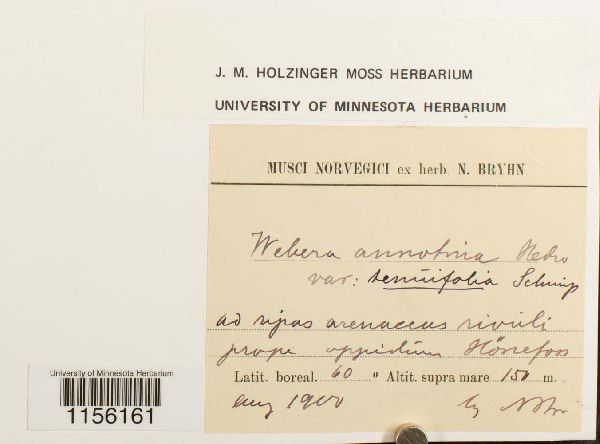 J. M. HOLZINGER MOSS HERBARIUM
UNIVERSITY OF MINNESOTA HERBARIUM
MUSCI NORVEGICI ex herb. N. BRYHN
Webera annotina Hedw
var: tenuifolia Schimp
ad ripas arenaceas rivuli
prope oppidum Hönefos
Latit. boreal. 60 ° Altit. supra mare 150 m.
Aug 1900
University of Minnesota Herbarium
1156161